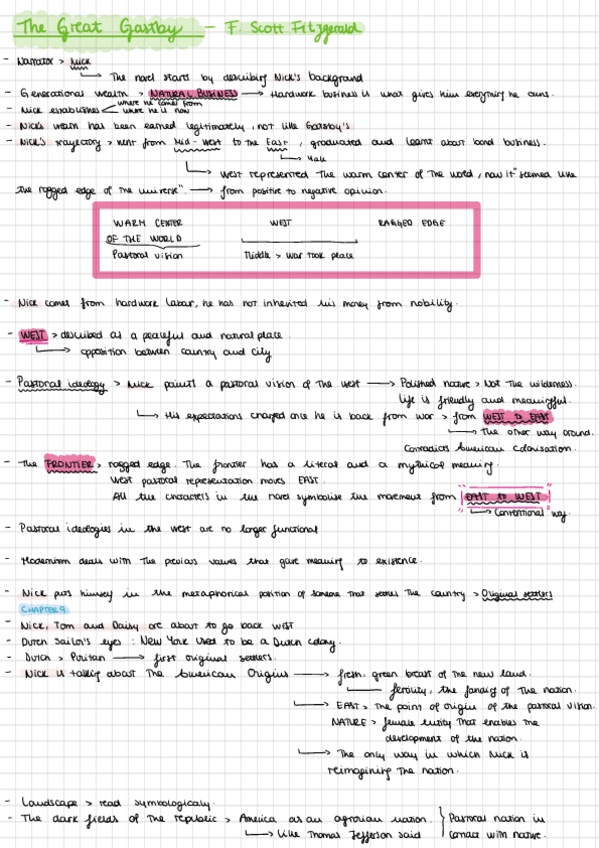 The Great Gastby - F. Scott Fitzgerald
- Narrator > Nick
The novel starts by describing Nick's background
- Generational wealth > NATURAL BUSINESS → Hardwork business is what gives him everything he owns.
- Nick establishes where he comes from
where he is now
- Nick's wealth has been earned legitimately, not like Gatsby's
- Nick's trajectory > went from Mid-West to the East, graduated and learnt about bond business.
Yale
West represented the warm center of the world, now it "seemed like
the ragged edge of the universe". → from positive to negative opinion.
WARM CENTER WEST RAGGED EDGE
OF THE WORLD
Pastoral vision Middle > war took place
- Nick comes from hardwork labour, he has not inherited his money from nobility.
- WEST > described as a peaceful and natural place.
opposition between country and city
- Pastoral ideology > Nick paints a pastoral vision of the west → Polished native > Not the wilderness.
life is friendly and meaningful.
His expectations changed once he is back from war > from WEST to EAST
the other way around.
Contradicts American Colonisation.
- The FRONTIER > ragged edge. The frontier has a literal and a mythical meaning
West pastoral representation moves EAST.
All the characters in the novel symbolise the movement from EAST to WEST
Conventional way.
- Pastoral ideologies in the west are no longer functional
- Modernism deals with the previous values that gave meaning to existence.
- Nick puts himself in the metaphorical position of someone that settles the country > Original settlers
CHAPTER 9
- Nick, Tom and Daisy are about to go back west
- Dutch Sailor's eyes : New York used to be a Dutch colony.
- Dutch > Puritan → first original settlers.
- Nick is talking about the American Origins → fresh, green breast of the new land.
fertility, the of the nation.
EAST > the point of origin of the pastoral vision.
NATURE > female entity that enables the
development of the nation.
The only way in which Nick is
reimagining the nation.
- Landscape > read symbologicaly.
- The dark fields of the republic > America as an agrarian nation. Pastoral nation in
Like Thomas Jefferson said contact with native.